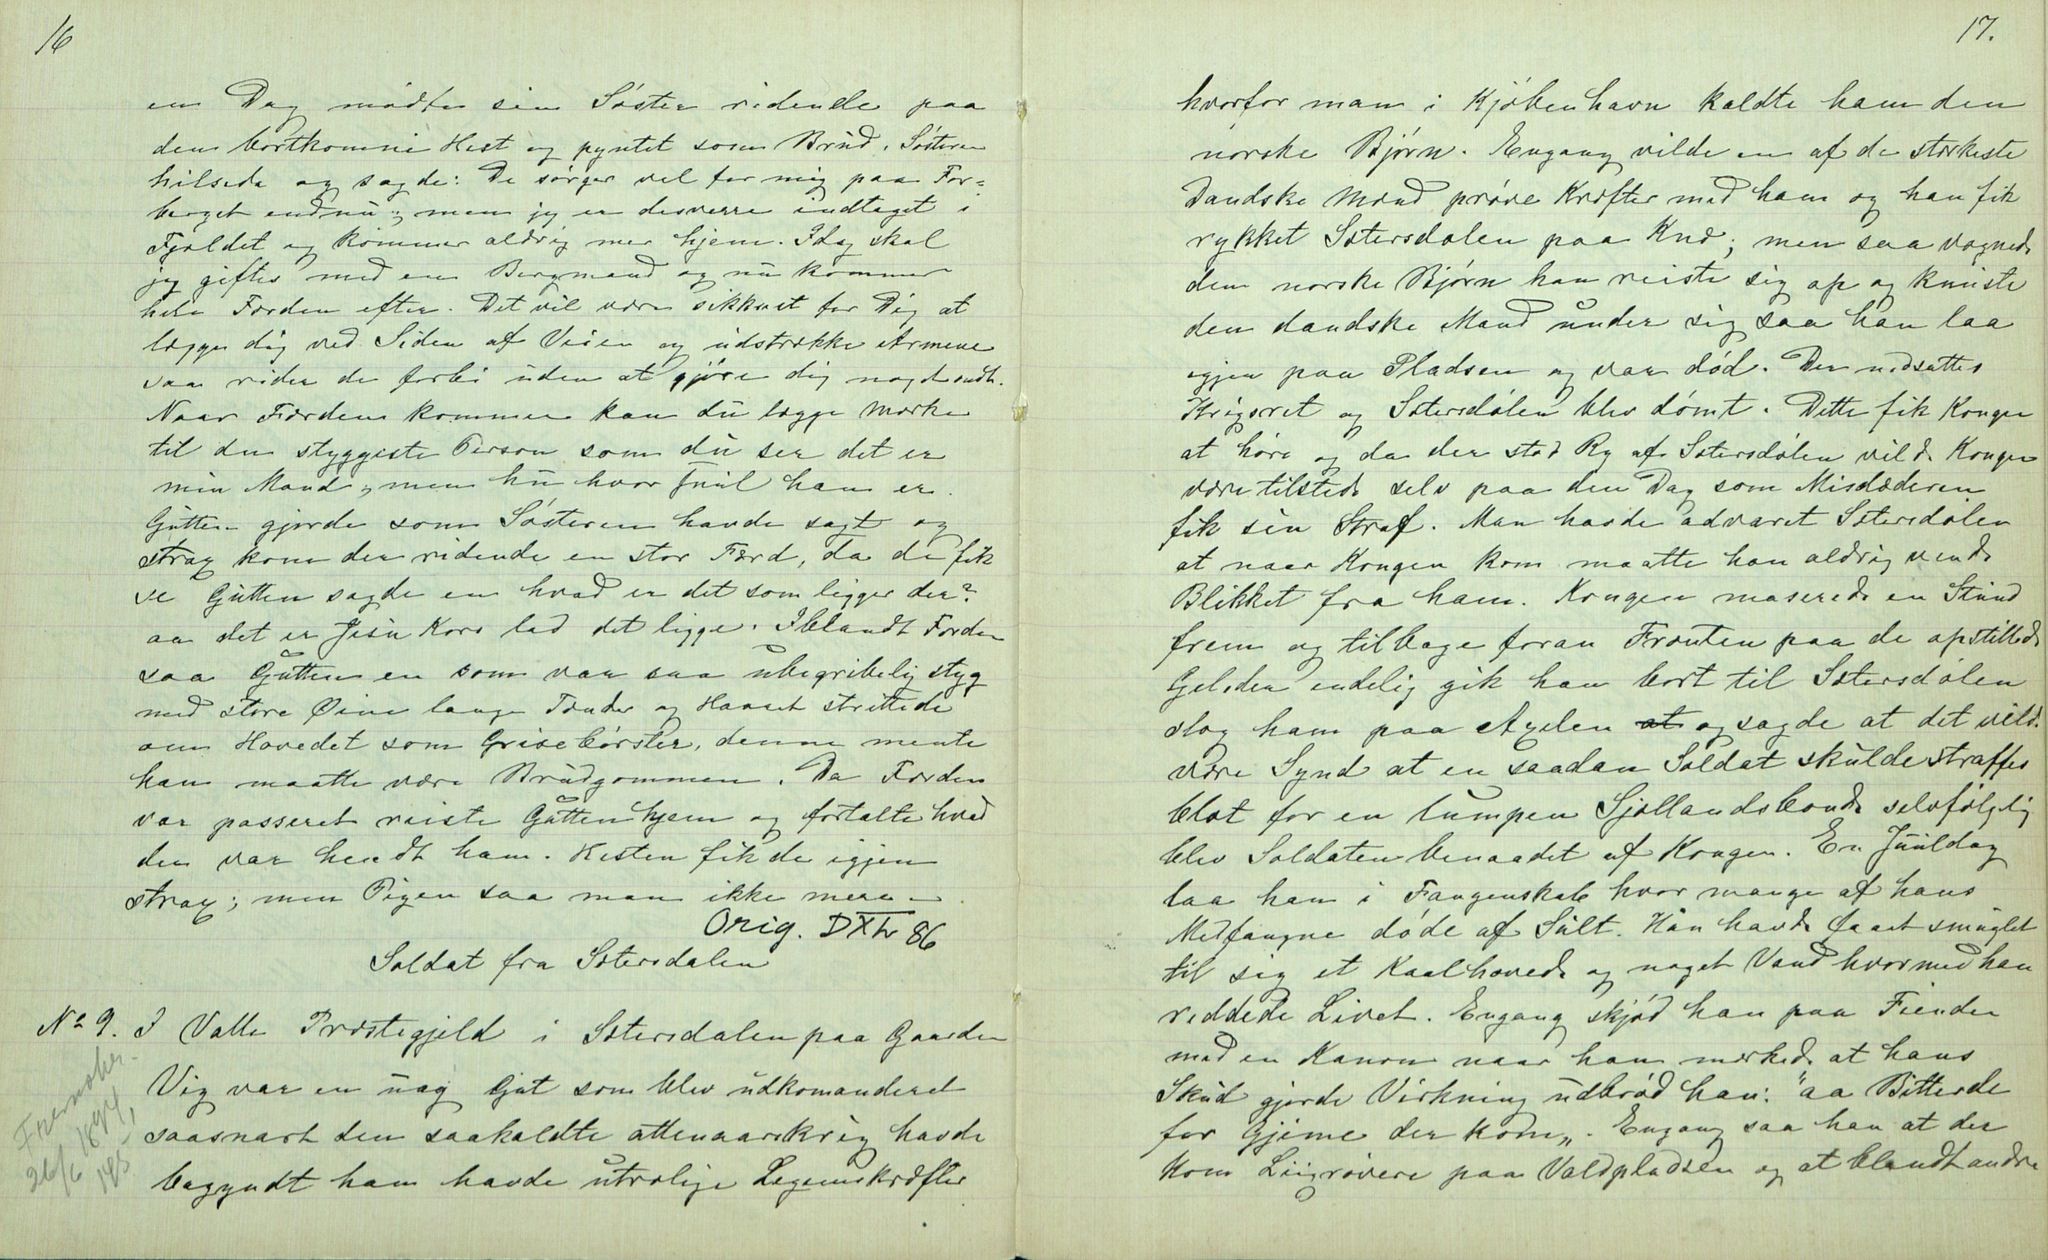 16
en Dag mødte sin Søster ridende paa
den bortkomne Hest og pyntet som Brud. Søsteren
hilsede og sagde: De sørger vel for mig paa For-
berget endnu; men jeg er desverre indtaget i
Fjeldet og kommer aldrig mer hjem. Idag skal
jeg giftes med en Bergmand og nu kommer
hele Færden efter. Det vil være sikkrest for Dig at
lægge dig ved Siden af Veien og udstrække Armene
saa rider de forbi uden at gjøre dig noget ondt.
Naar Færden kommer kan du lægge Mærke
til den styggeste Person som du ser det er
min Mand; men hu hvor fuul han er.
Gutten gjorde som Søsteren havde sagt og
strax kom der ridende en stor Færd, da de fik
se Gutten sagde en hvad er det som ligger der?
aa det er Jesu Kors lad det ligge. Iblandt Færden
saa Gutten en som var saa ubegribelig styg
med store Øine lange Tænder og Haaret strittede
om Hovedet som Grisebørster, denne mente
han maatte være Brudgommen. Da Færden
var passeret reiste Gutten hjem og fortalte hvad
der var hendt ham. Hesten fik de igjen
strax; men Pigen saa man ikke mere.
Orig. DXIV 86
Soldat fra Sætersdalen
No 9. I Valle Præstegjeld i Sætersdalen paa Gaarden
Vig var en ung Gut som blev udkomanderet
saasnart den saakaldte attenaarskrig havde
begyndt han havde utrolige Legemskræfter
26/6 1894,
17.
hvorfor man i Kjøbenhavn kaldte ham den
norske Bjørn. Engang vilde en af de stærkeste
Dandske Mænd prøve Kræfter med ham og han fik
rykket Sætersdølen paa Knæ; men saa vognede
den norske Bjørn han reiste sig op og knuste
den dandske Mand under sig saa han laa
igjen paa Pladsen og var død. Der nedsattes
Krigsret og Sætersdølen blev dømt. Dette fik Kongen
at høre og da der stod Ry af Sætersdølen vilde Kongen
være tilstede selv paa den Dag som Misdæderen
fik sin Straf. Man havde advaret Sætersdølen
at naar Kongen kom maatte han aldrig vende
Blikket fra ham. Kongen maserede en Stund
frem og tilbage foran Fronten paa de opstillede
Geleder endelig gik han bort til Sætersdølen
slog ham paa Axelen at og sagde at det vilde
være Synd at en saadan Soldat skulde straffes
blot for en lumpen Sjællandsbonde selvfølgelig
blev Soldaten benaadet af Kongen. En Juuldag
laa han i Fangenskab hvor mange af hans
Medfangne døde af Sult. Han havde faaet smuglet
til sig et Kaalhovede og noget Vand hvormed han
reddede Livet. Engang skjød han paa Fienden
med en Kanon naar han mærkede at hans
Skud gjorde Virkning udbrød han: "aa Bitterde
for Gjime der kom". Engang saa han at der
kom Liigrøvere paa Valdpladsen og at blandt andre